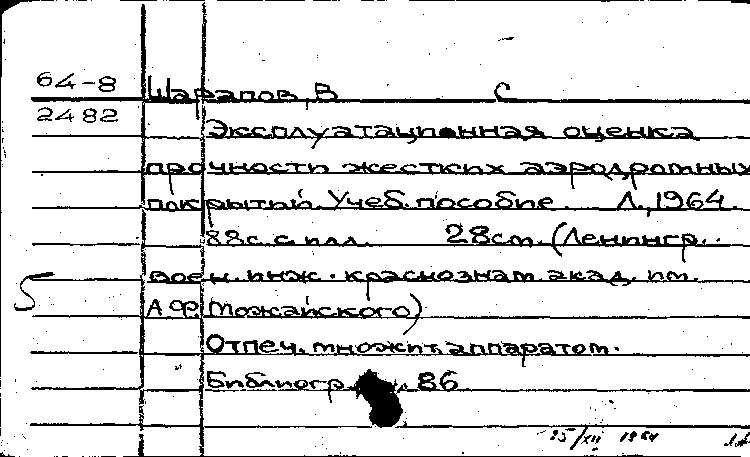 64-8 Шарапов, В С
2482
Эксплуатационная оценка
прочности жестких аэродромных
покрытий. Учеб. пособие. Л., 1964.
88с. с илл. 28см. (Ленингр.
воен. инж. краснознам. акад. им.
А.Ф. Можайского)
Отпеч. множит. аппаратом.
Библиогр. 86
5
25/XII 1964